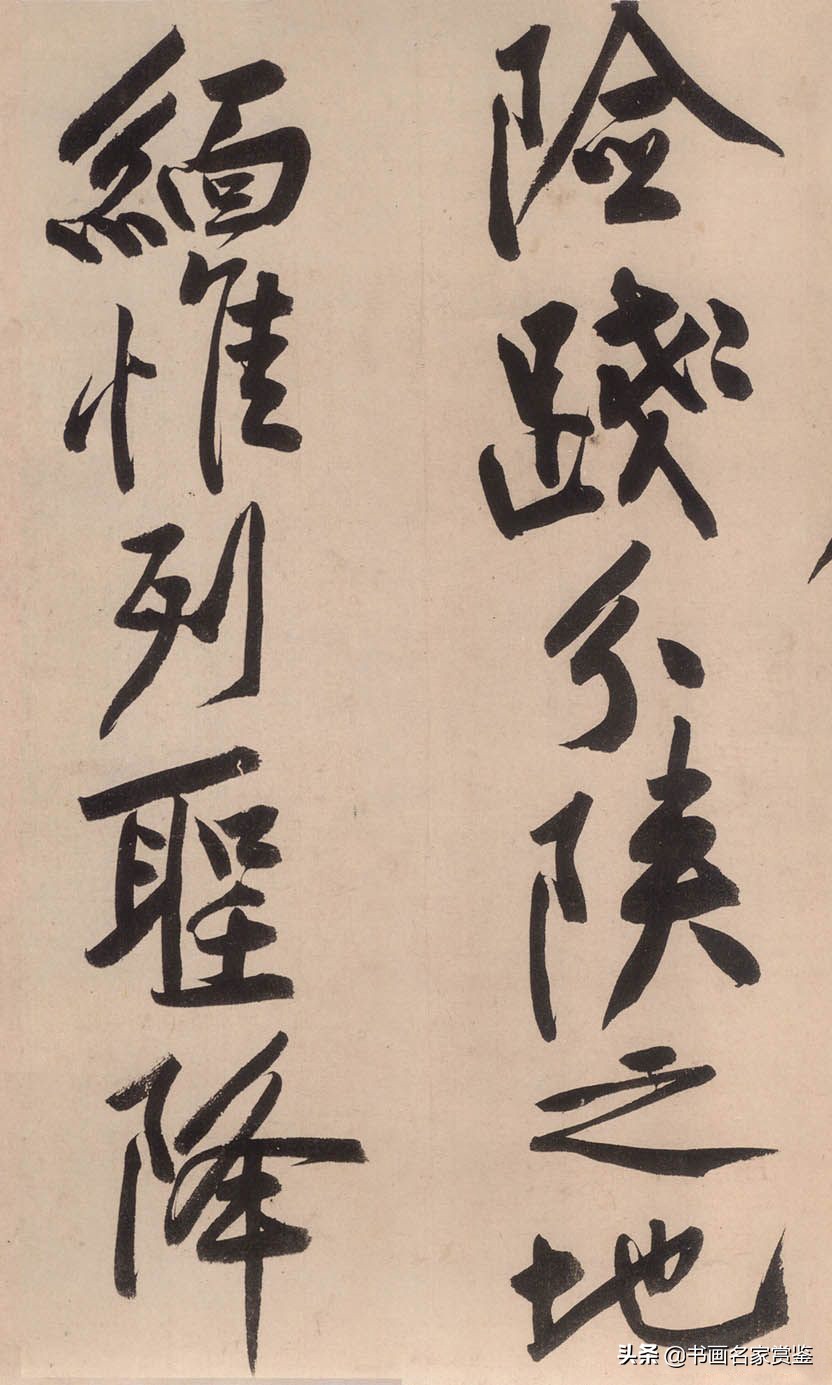 險踐分陝之地
緬惟列聖降
头条 @书画名家赏鉴